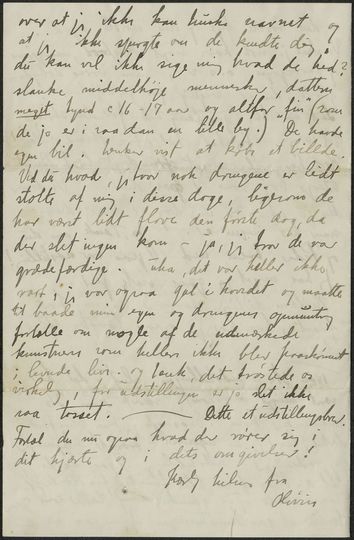 over at jeg ikke kan huske navnet og
at jeg ikke spurgte om de kendte dig,
du kan vel ikke sige mig hvad de hed?
slanke middelhøje mennesker, datteren
meget tynd c 16-17 aar og altfor "fin" (som
de jo er i saadan en lille by). De havde
egen bil. tænker vist at købe et billede.
Ved du hvad, jeg tror nok drengene er lidt
stolte af mig i disse dage, ligesom de
har været lidt flove den første dag, da
der slet ingen kom – ja, jeg tror de var
grædefærdige. uha, det var heller ikke
rart, jeg var ogsaa gal i hovedet og maatte
til baade min egen og drengenes opmuntring
fortælle om nogle af de udmærkede
kunstnere som hellers ikke blev paaskønnet
i levende live. og tænk, det trøstede os
virkelig, for udstillingen er jo slet ikke
saa tosset. Dette et udstillingsbrev.
Fortæl du nu ogsaa hvad der rører sig i
dit hjerte og i dets omgivelser!
Kærlig hilsen fra